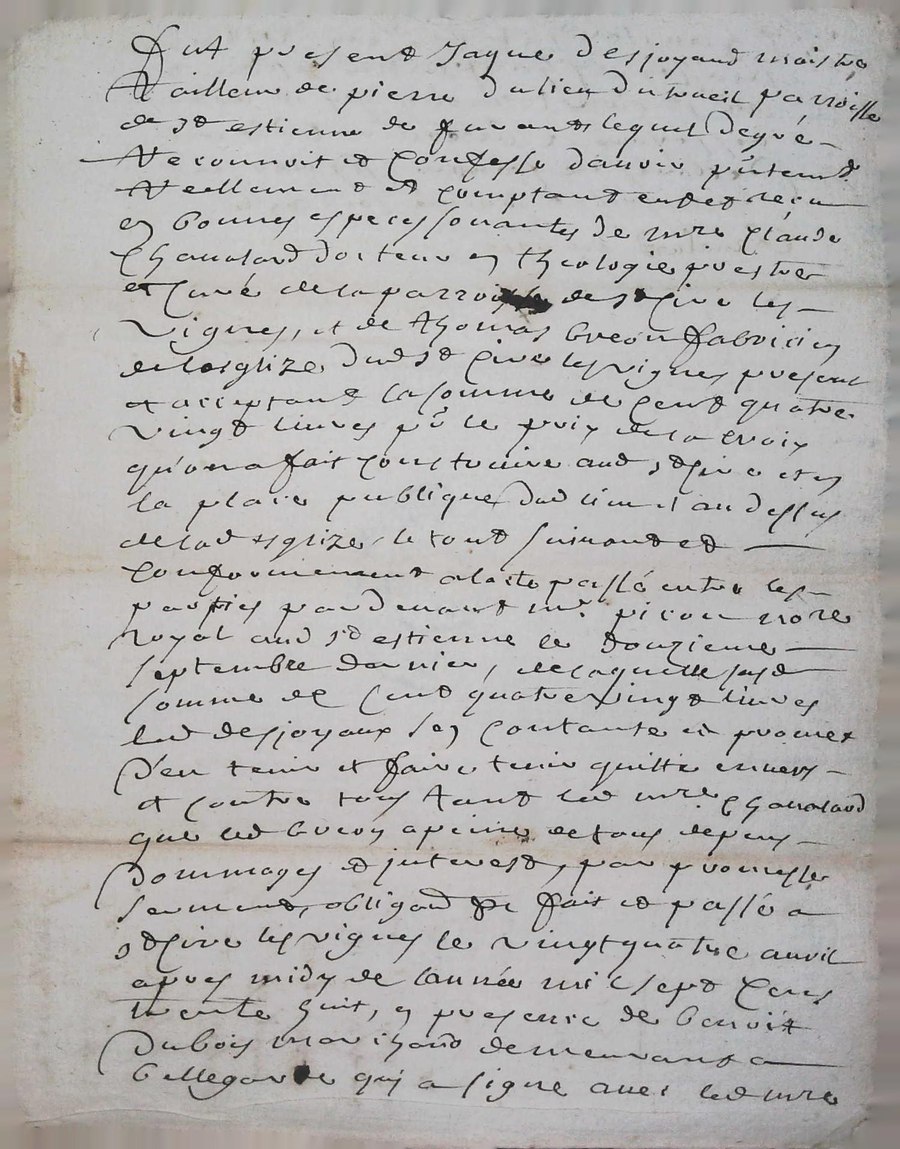 Fut present Jaque Desjoyaud maistre
tailleur de pierre du lieu du treüil parroisse
de st estienne de furand lequel de gré
reconnoit et confesse d'avoir p~ntement
reellement et comptant eu et receu
en bonnes especes sonantes de mre Claude
Chauvard docteur en theologie prestre
et curé de la parroisse de st Cire les
vignes, et de thomas breon fabricien
de lesglize dud st Cire les vignes present
et acceptant la somme de Cent quatre
vingt livres pr le prix de la Croix
qu'on a fait construire aud st Cire et en
la place publique dud lieu et au dessus
de lad esglize, le tout suivant et
Conformement a lacte passé entre les
parties pardevant mr picon nore
royal aud st estienne le douzieme
septembre dernier, de laquelle susd
somme de Cent quatre vingt livres
led desjoyaux sen contante et promet
d'en tenir et faire tenir quitte envers
et contre tous tant led mre Chauvard
que led breon a peine de tous depens
dommages et interest, par promesse
serment, obligaon &c fait et passé a
st Cire les vignes le vingt quatre avril
apres midy de lannée mil sept Cens
trente huit, en presence de benoit
Dubois marchand demeurant a
bellegarde qui a signe avec led mre